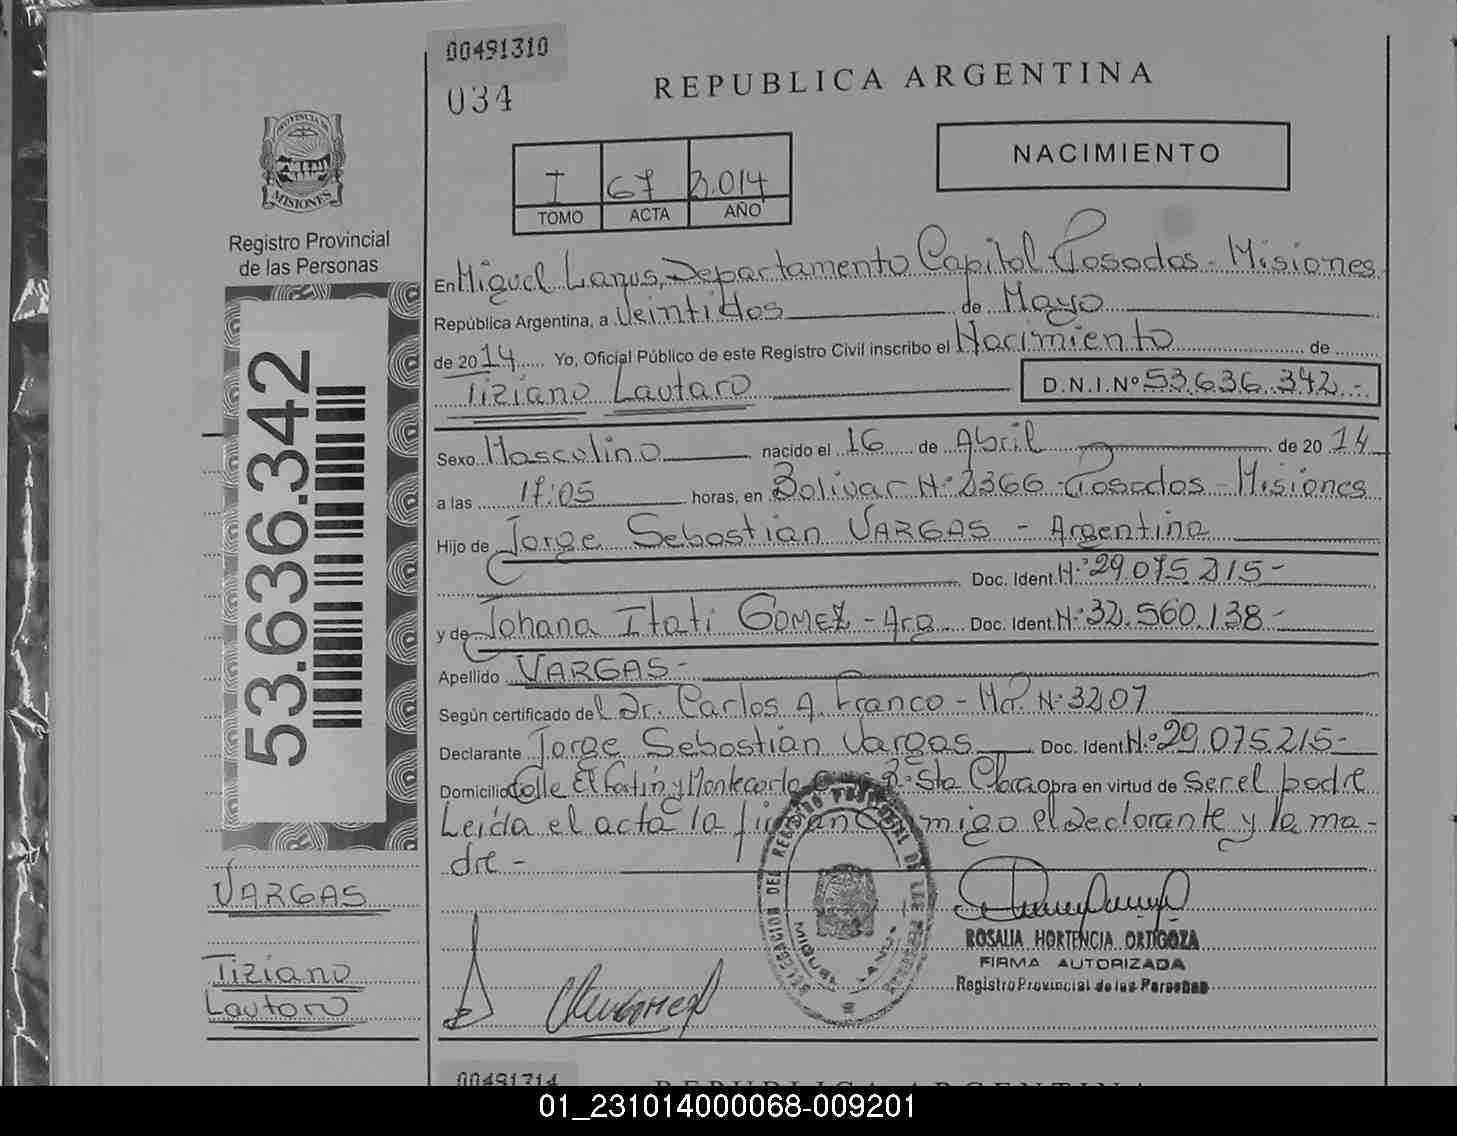 00491310
034
REPUBLICA ARGENTINA
I 67 2.014
TOMO ACTA AÑO
NACIMIENTO
PROVINCIA DE MISIONES
Registro Provincial
de las Personas
En Miguel Lanus, Departamento Capital Posadas - Misiones
República Argentina, a Veintidos de Mayo
de 2014 Yo, Oficial Público de este Registro Civil inscribo el Nacimiento de
Tiziano Lautaro D.N.I.Nº 53.636.342.-
Sexo Masculino nacido el 16 de Abril de 2014
a las 17:05 horas, en Bolivar Nº 2366 - Posadas - Misiones
Hijo de Jorge Sebastian VARGAS - Argentina
Doc. Ident. Nº 29.075.215-
y de Johana Itati GOMEZ - Arg. Doc. Ident. Nº 32.560.138-
Apellido VARGAS-
Según certificado del Dr. Carlos A. Franco - M.P. Nº 3207
Declarante Jorge Sebastian Vargas Doc. Ident. Nº 29.075.215-
Domicilio Calle El Fortin y Montecarlo Sta Clara obra en virtud de ser el padre
Leida el acta la firman conmigo el declarante y la ma-
dre -
53.636.342
VARGAS
Tiziano
Lautaro
DELEGACION DEL REGISTRO PROVINCIAL DE LAS PERSONAS
MIGUEL LANUS
ROSALIA HORTENCIA ORTIGOZA
FIRMA AUTORIZADA
Registro Provincial de las Personas
00491314
REPUBLICA ARGENTINA
01_231014000068-009201